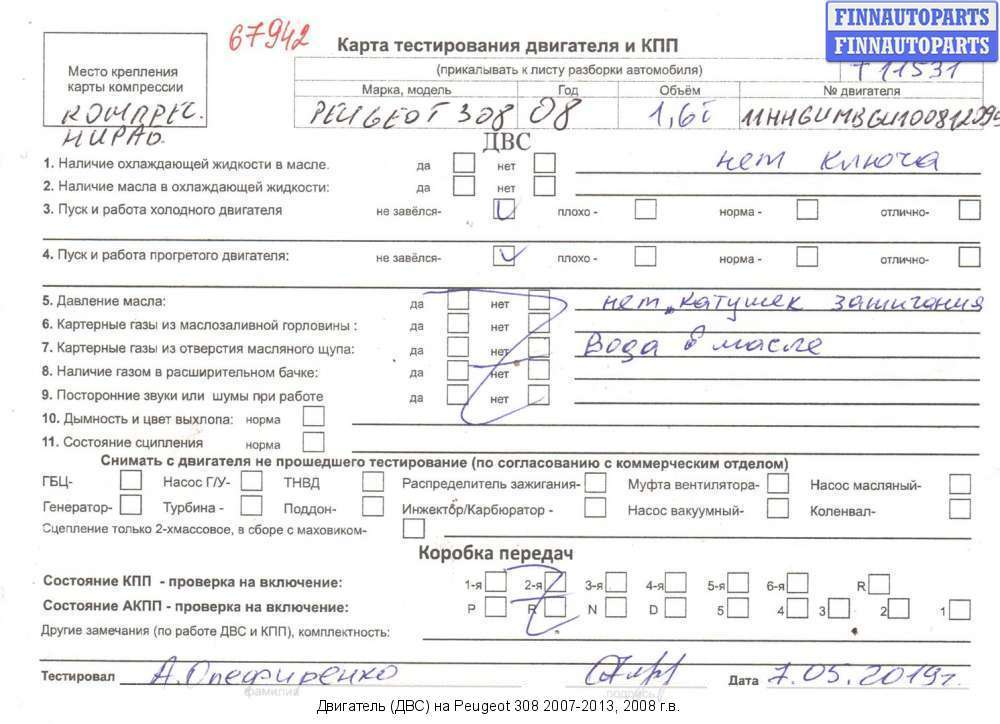 FINNAUTOPARTS
FINNAUTOPARTS
67942
Карта тестирования двигателя и КПП
(прикалывать к листу разборки автомобиля)
T11531
Место крепления
карты компрессии
КОМПРЕС.
Марка, модель Год Объём № двигателя
PEUGEOT 308 08 1,6i
ДВС
нет ключа
1. Наличие охлаждающей жидкости в масле. да нет
2. Наличие масла в охлаждающей жидкости: да нет
3. Пуск и работа холодного двигателя не завёлся- плохо - норма - отлично-
4. Пуск и работа прогретого двигателя: не завёлся- плохо - норма - отлично-
5. Давление масла: да нет нет катушек зажигания
6. Картерные газы из маслозаливной горловины : да нет
7. Картерные газы из отверстия масляного щупа: да нет Вода в масле
8. Наличие газом в расширительном бачке: да нет
9. Посторонние звуки или шумы при работе да нет
10. Дымность и цвет выхлопа: норма
11. Состояние сципления норма
Снимать с двигателя не прошедшего тестирование (по согласованию с коммерческим отделом)
ГБЦ- Насос Г/У- ТНВД Распределитель зажигания- Муфта вентилятора- Насос масляный-
Генератор- Турбина - Поддон- Инжектор/Карбюратор - Насос вакуумный- Коленвал-
Сцепление только 2-хмассовое, в сборе с маховиком-
Коробка передач
Состояние КПП - проверка на включение: 1-я 2-я 3-я 4-я 5-я 6-я R
Состояние АКПП - проверка на включение: P R N D 5 4 3 2 1
Другие замечания (по работе ДВС и КПП), комплектность:
Тестировал А. Олефиренко Дата 7.05.2019г.
фамилия подпись
Двигатель (ДВС) на Peugeot 308 2007-2013, 2008 г.в.